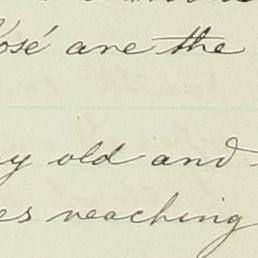 José are the
old and
reaching